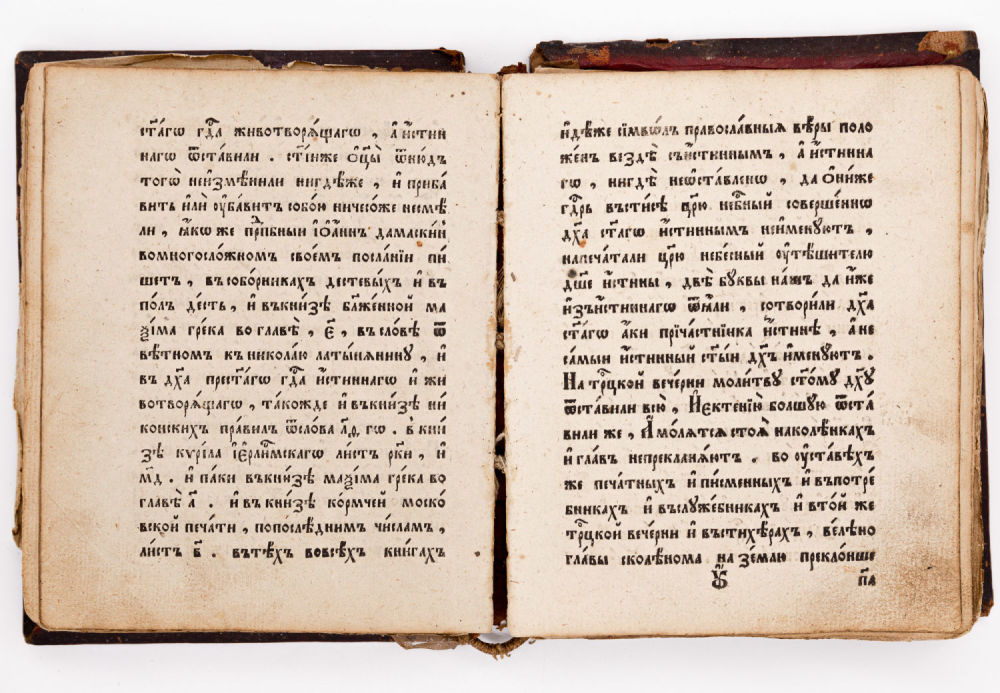 ст҃а́гѡ гдⷭ҇а животворѧ́щагѡ , а҆ и҆́стин
нагѡ ѿста́вили . ст҃і́иже о҆ц҃ы̀ ѿню́дъ
тогѡ̀ неи҆змѣни́ли нигдѣ́же , и҆ приба́
вить и҆лѝ о҆у҆ба́вить собо́ю ничесо́же несмѣ́
ли , ꙗ҆́коже прпⷣбный і҆ѡа́ннъ дамаски́н
вомногосло́жномъ своѐмъ посла́нїи пи́
шетъ , въ собо́рникахъ десте́выхъ и҆ въ
по́лъ де́сть , и҆ въ кни́зѣ бл҃же́нной ма
ѯи́ма гре́ка во главѣ̀ , є҃ , въ сло́вѣ ѿ
вѣ́тномъ къ никола́ю латы́нянину , и҆
въ дх҃а прест҃а́гѡ гдⷭ҇а и҆́стиннагѡ и҆ жи
вотворѧ́щагѡ , та́кожде и҆ въ кни́зѣ ни́
конскихъ пра́вилъ ѿ сло́ва гѡ . в кни́
зѣ кѷри́ла і҆ерⷭ҇ли́мскагѡ ли́стъ рк҃и , и҆
мд҃ . и҆ па́ки въ кни́зѣ маѯи́ма гре́ка во
главѣ̀ а҃ . и҆ въ кни́зѣ ко́рмчей моско́
вской печа́ти , попослѣ́днимъ чи́сламъ ,
ли́стъ в҃ . въ тѣ́хъ вовсѣ́хъ кни́гахъ
и҆дѣ́же сѵмво́лъ правосла́вныѧ вѣ́ры поло
же́нъ вездѣ̀ съи҆́стиннымъ , а҆ и҆́стинна
гѡ , нигдѣ̀ неѡ҆ста́вленѡ , да о҆ни́же
гдⷭ҇рь въсти́сѣ цр҃ю̀ нбⷭ҇ный соверше́ннѡ
дх҃а ст҃а́гѡ и҆́стиннымъ неи҆мену́ютъ ,
напеча́тали цр҃ю̀ небе́сный о҆у҆тѣ́шителю
дш҃е и҆́стины , двѣ̀ бу́квы на́шъ да и҆́же
и҆зъи҆́стиннагѡ ѿѧ́ли , сотвори́ли дх҃а
ст҃а́гѡ а҆́ки прича́стника и҆́стинѣ , а҆ не
са́мый и҆́стинный ст҃ы́й дх҃ъ и҆мену́ютъ .
На трⷪ҇цкой вече́рни моли́тву ст҃о́му дх҃у
ѿста́вили всю̀ , И҆ є҆ктенїю̀ болшу́ю ѿста́
вили же , А҆ мо́лѧтсѧ стоѧ̀ наколѣ́нкахъ
и҆ гла́въ непреклонѧ́ютъ . во о҆у҆ста́вѣхъ
же печа́тныхъ и҆ пи́сменныхъ и҆ въпотре́
бникахъ и҆ въслуже́бникахъ и҆ втой же
трⷪ҇цкой вече́рни и҆ въстихѣ́рахъ , ве́лѣно
главы̀ сколѣ́нома на зе́млю прекло́нше
п҃а